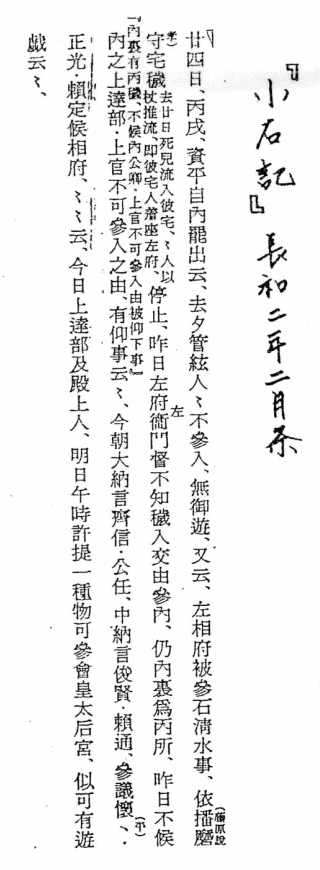 『小右記』長和二年二月条
『廿四日、丙戌、資平自內罷出云、去夕管絃人〻不參入、無御遊、又云、左相府被參石淸水事、依播磨
(藤原說
孝)
守宅穢
去廿日死兒流入彼宅、〻人以
杖推流、卽彼宅人着座左府、
停止、昨日左府衞門督不知穢入交由參內、仍內裏爲丙所、昨日不候
左
『內裏有丙穢、不候內公卿・上官不可參入由被仰下事』
內之上達部・上官不可參入之由、有仰事云〻、今朝大納言齊信・公任、中納言俊賢・賴通、參議懷〻・
(平)
正光・賴定候相府、〻〻云、今日上達部及殿上人、明日午時許提一種物可參會皇太后宮、似可有遊
戲云〻、